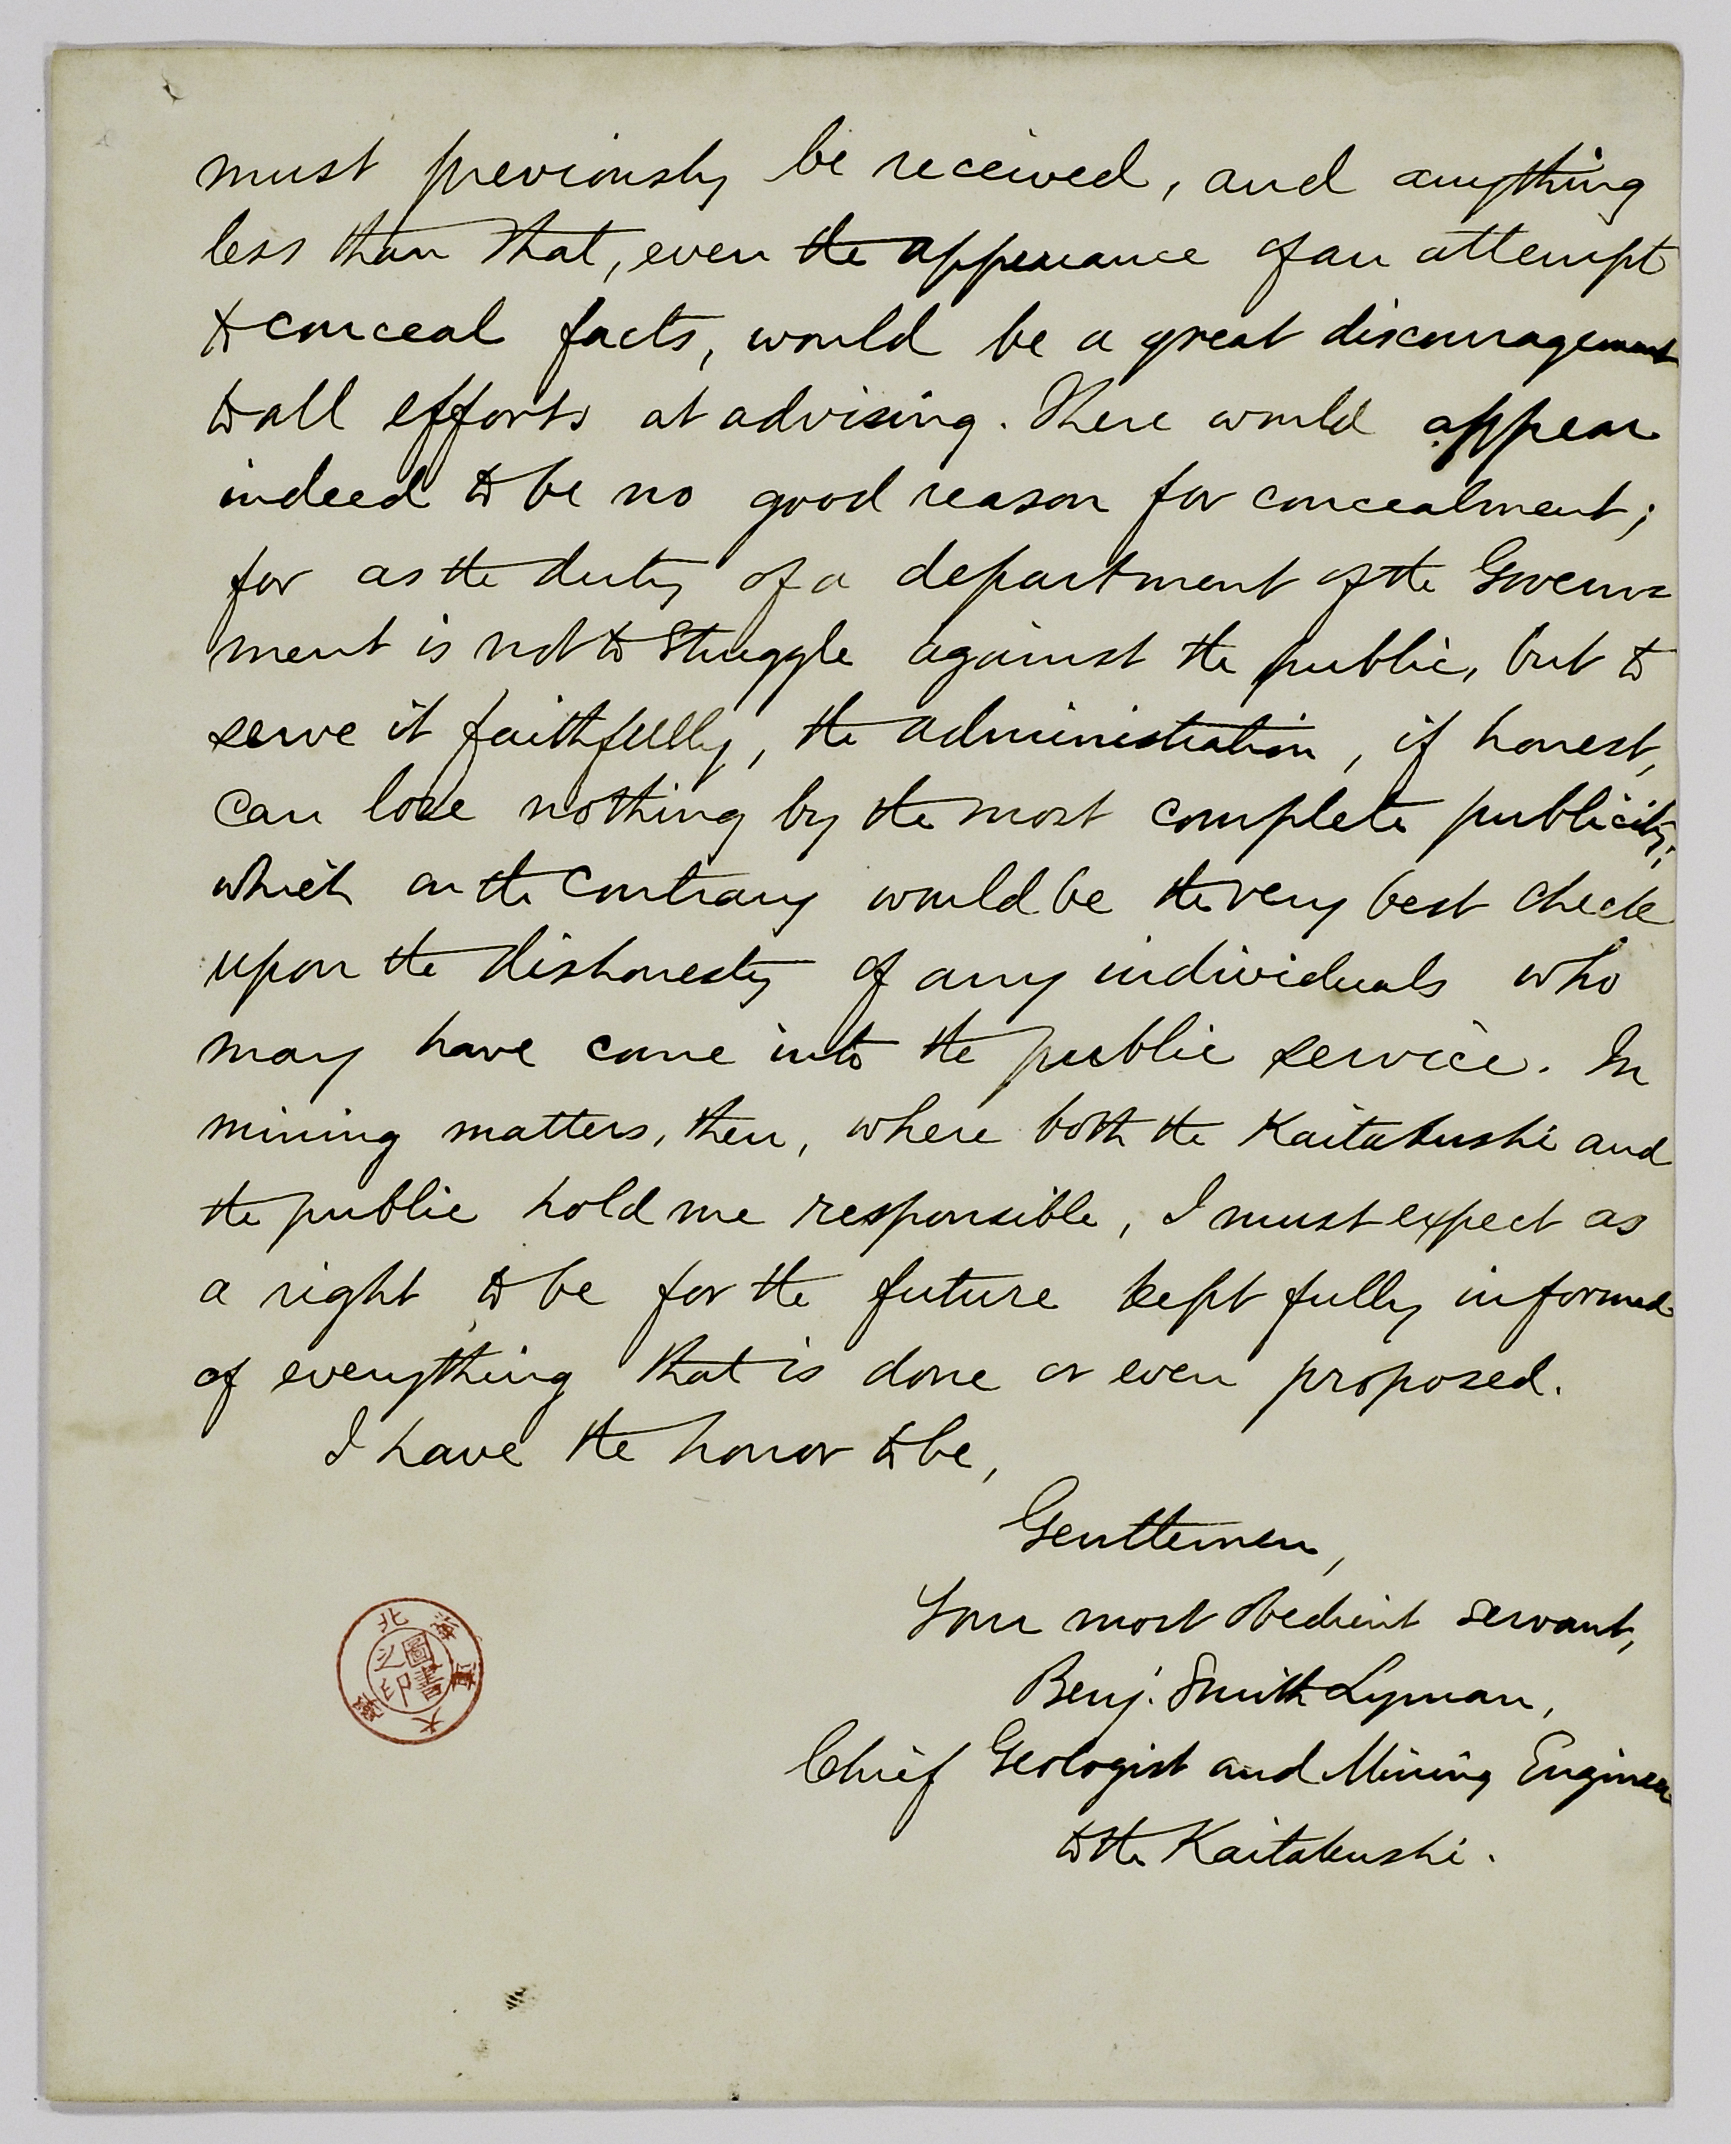 must previously be received, and anything
less than that, even the appearance of an attempt
to conceal facts, would be a great discouragement
to all efforts at advising. There would appear
indeed to be no good reason for concealment;
for as the duty of a department of the Govern=
ment is not to struggle against the public, but to
serve it faithfully, the administration, if honest,
can lose nothing by the most complete publicity;
which on the contrary would be the very best check
upon the dishonesty of any individuals who
may have come into the public service. In
mining matters, then, where both the Kaitakushi and
the public hold me responsible, I must expect as
a right to be for the future kept fully informed
of everything that is done or even proposed.
I have the honor to be,
Gentlemen,
Your most obedient servant,
Benj. Smith Lyman,
Chief Geologist and Mining Engineer
to the Kaitakushi.
北海道大學
圖書之印